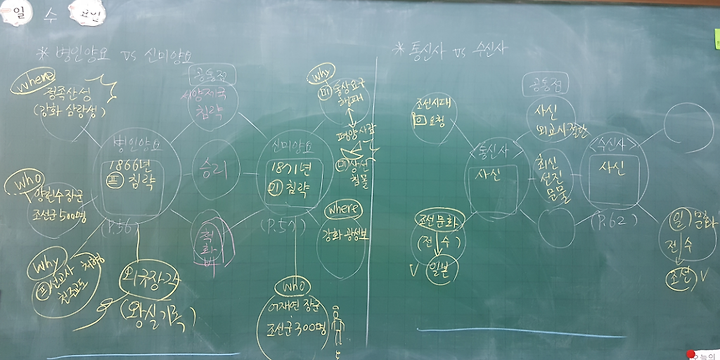 일 수
* 병인양요 vs 신미양요
where
정족산성
(강화 삼랑성)
who
양헌수 장군
조선군 500명
why
천주교도 처형
병인양요
1866년
침략
(P.56)
외국장각
(왕실기록)
공통점
서양 제국
침략
승리
신미양요
1871년
침략
(P.57)
why
통상요구
평양사람
침몰
where
강화 광성보
who
어재연 장군
조선군 300명
* 통신사 vs 수신사
조선시대
요청
<통신사>
사신
조선 문화
(전수)
일본
공통점
사신
외교사절단
최신
선진
문물
<수신사>
사신
(P.62)
일 문화
전수
조선